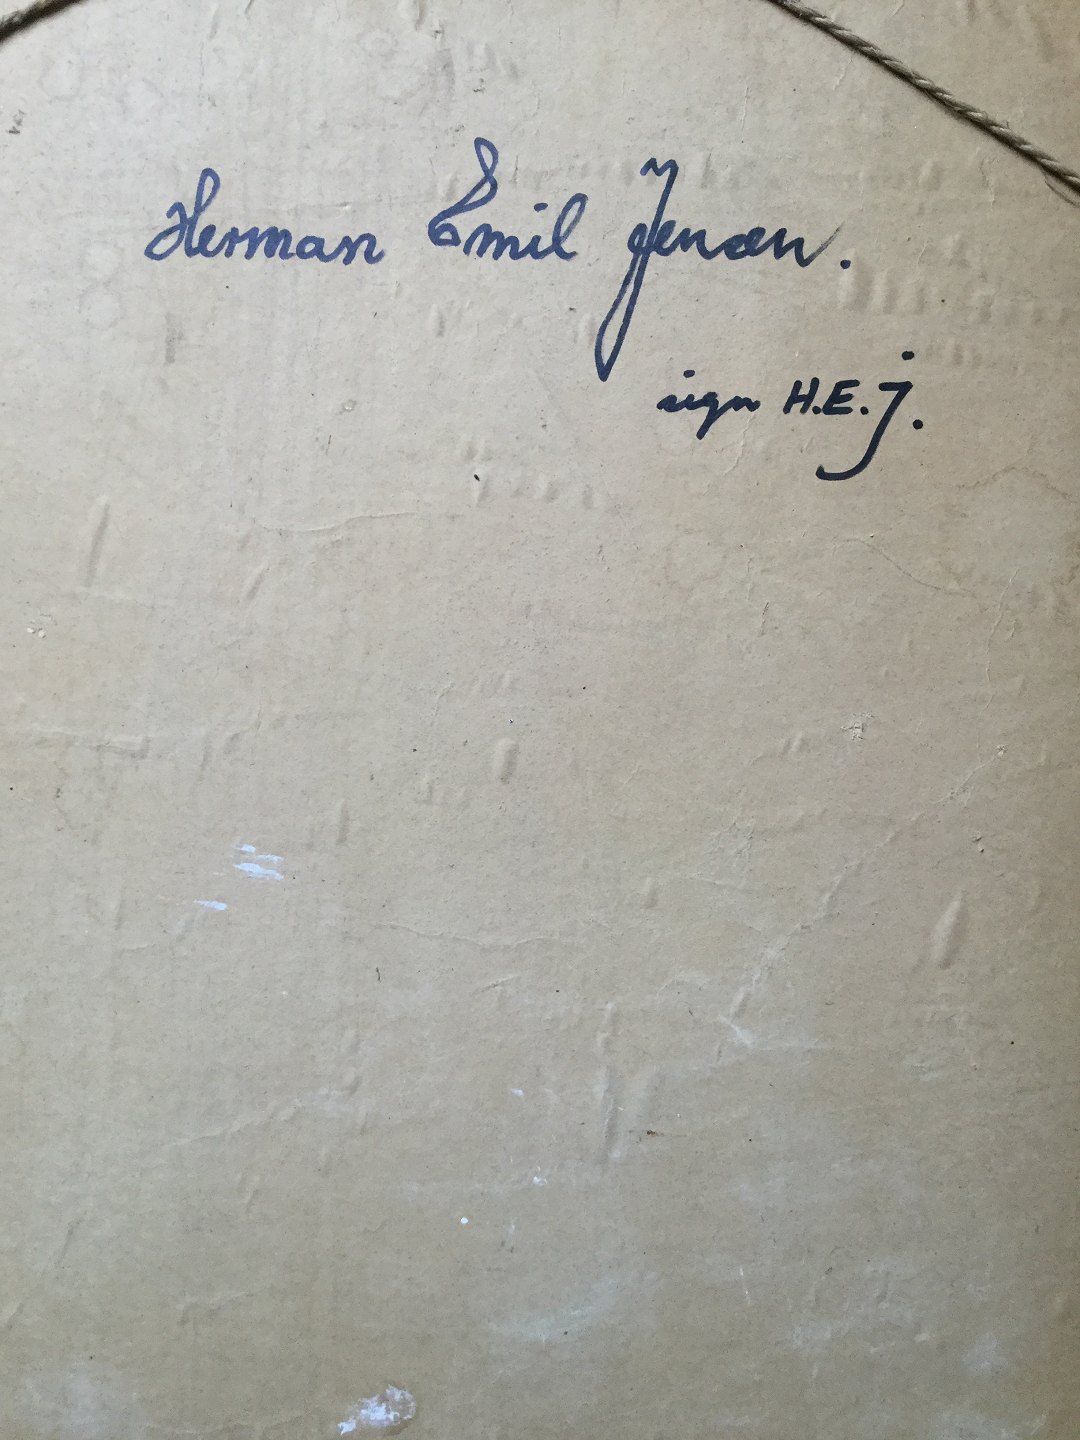 Herman Emil Jensen.
sign H.E.J.